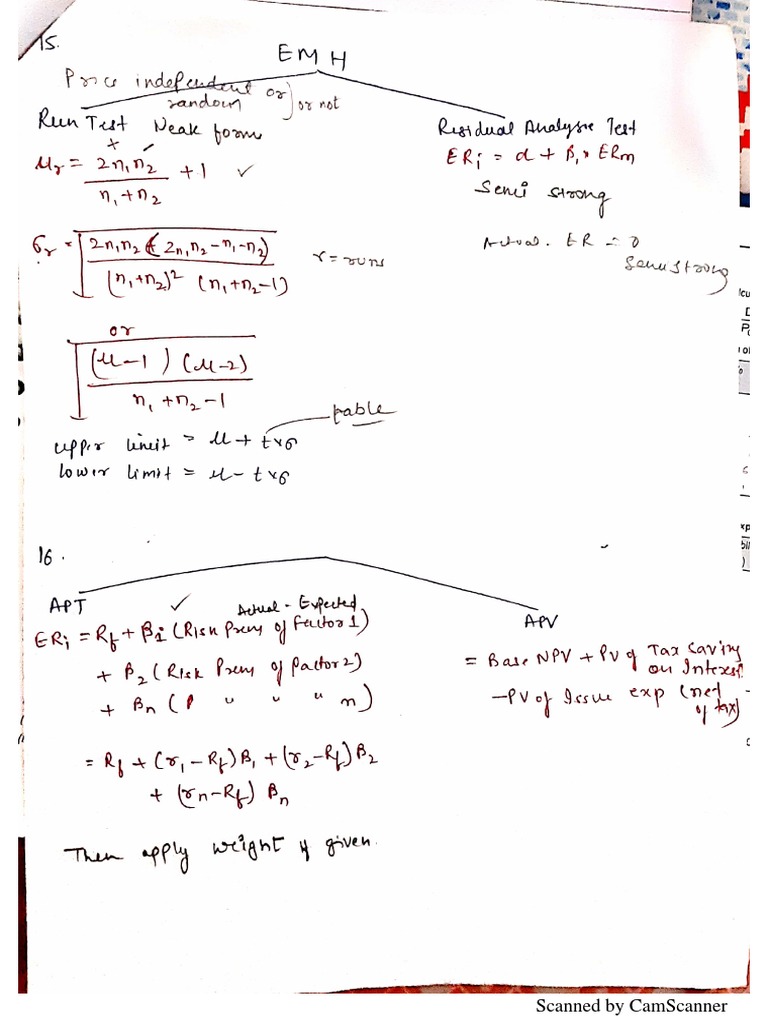 15.
EMH
Price independent or
random
or not
Run Test Weak form
+ -
μr = 2n1n2 / n1+n2 + 1 ✓
σr = √ 2n1n2 (2n1n2 - n1 - n2) / (n1+n2)² (n1+n2-1)
r = runs
or
√ (μ-1) (μ-2) / n1+n2-1
table
upper limit = μ + t×σ
lower limit = μ - t×σ
Residual Analysis Test
ERi = α + βi × ERm
Semi strong
Actual. ER = 0
Semi strong
16.
APT
✓ Actual - Expected
ERi = Rf + β1 (Risk Prem of Factor 1)
+ β2 (Risk Prem of Factor 2)
+ βn ( " " " n)
= Rf + (r1 - Rf) β1 + (r2 - Rf) β2
+ (rn - Rf) βn
Then apply weight if given.
APV
= Base NPV + PV of Tax Saving
on Interest
- PV of Issue exp (net
of tax)
Scanned by CamScanner